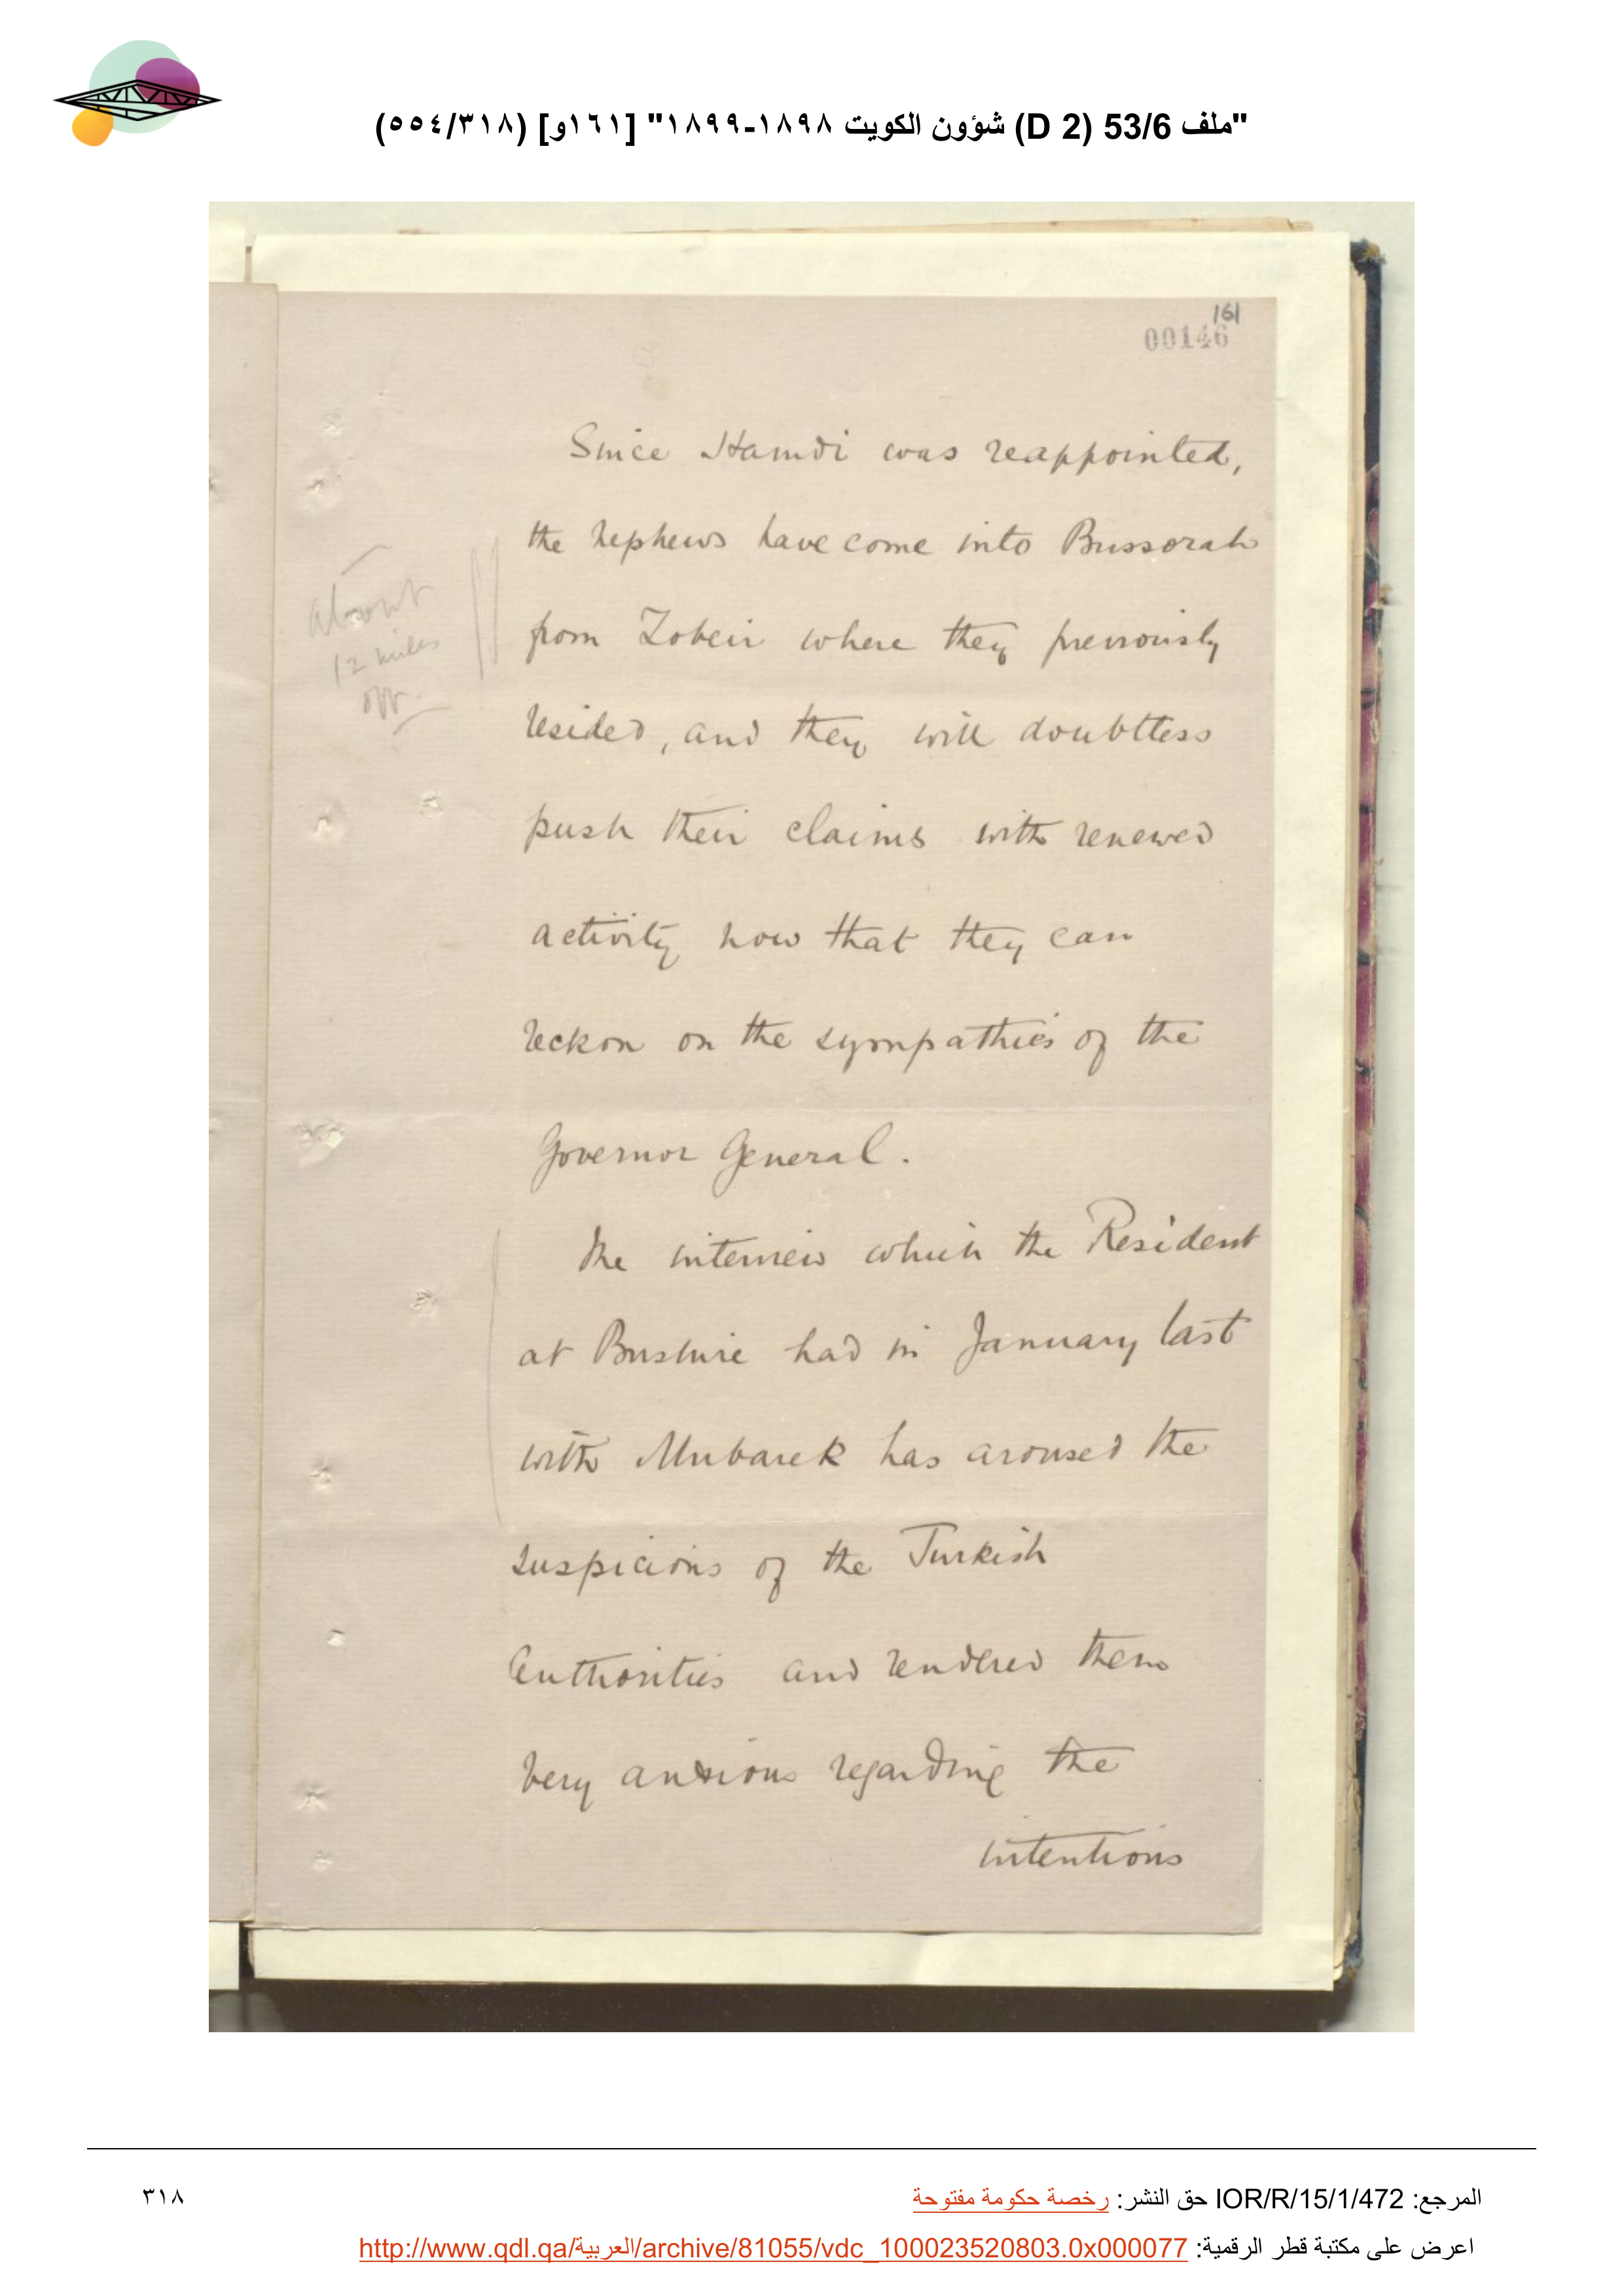 "ملف 53/6 (D 2) شؤون الكويت ١٨٩٨-١٨٩٩" [١٦١و] (٣١٨/٥٥٤)
161
00146
Since Hamdi was reappointed,
the nephews have come into Bussorah
from Zobeir where they previously
resided, and they will doubtless
push their claims with renewed
activity now that they can
reckon on the sympathies of the
Governor General.
The interview which the Resident
at Bushire had in January last
with Mubarek has aroused the
suspicions of the Turkish
Authorities and rendered them
very anxious regarding the
intentions
about
12 miles
off.
المرجع: IOR/R/15/1/472 حق النشر: رخصة حكومة مفتوحة
٣١٨
اعرض على مكتبة قطر الرقمية: http://www.qdl.qa/العربية/archive/81055/vdc_100023520803.0x000077